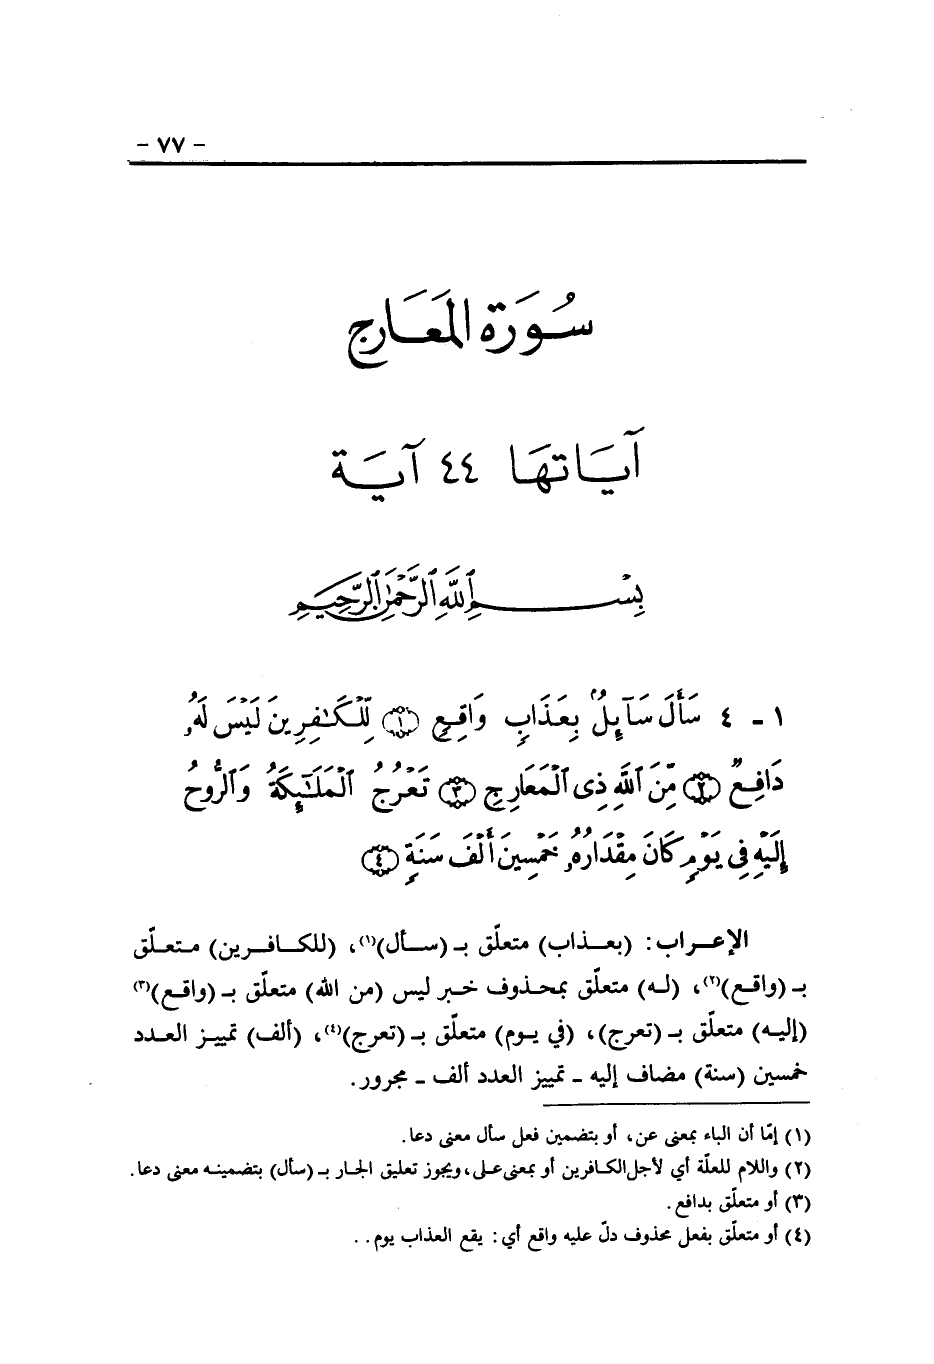 - ٧٧ -
سُورَة المَعَارِج
آيَاتهَا ٤٤ آيَة
بِسْمِ ٱللَّهِ ٱلرَّحْمَٰنِ ٱلرَّحِيمِ
١ - ٤ سَأَلَ سَآئِلٌۢ بِعَذَابٍ وَاقِعٍ ﴿١﴾ لِّلْكَٰفِرِينَ لَيْسَ لَهُۥ
دَافِعٌ ﴿٢﴾ مِّنَ ٱللَّهِ ذِى ٱلْمَعَارِجِ ﴿٣﴾ تَعْرُجُ ٱلْمَلَٰٓئِكَةُ وَٱلرُّوحُ
إِلَيْهِ فِى يَوْمٍ كَانَ مِقْدَارُهُۥ خَمْسِينَ أَلْفَ سَنَةٍ ﴿٤﴾
الإعراب: (بعذاب) متعلّق بـ (سأل)(١)، (للكافرين) متعلّق
بـ (واقع)(٢)، (له) متعلق بمحذوف خبر ليس (من الله) متعلّق بـ (واقع)(٣)
(إليه) متعلّق بـ (تعرج)، (في يوم) متعلّق بـ (تعرج)(٤)، (ألف) تمييز العدد
خمسين (سنة) مضاف إليه - تمييز العدد ألف - مجرور.
(١) إمّا أن الباء بمعنى عن، أو بتضمين فعل سأل معنى دعا.
(٢) واللام للعلّة أي لأجل الكافرين أو بمعنى على، ويجوز تعليق الجار بـ (سأل) بتضمينه معنى دعا.
(٣) أو متعلّق بدافع.
(٤) أو متعلّق بفعل محذوف دلّ عليه واقع أي: يقع العذاب يوم..